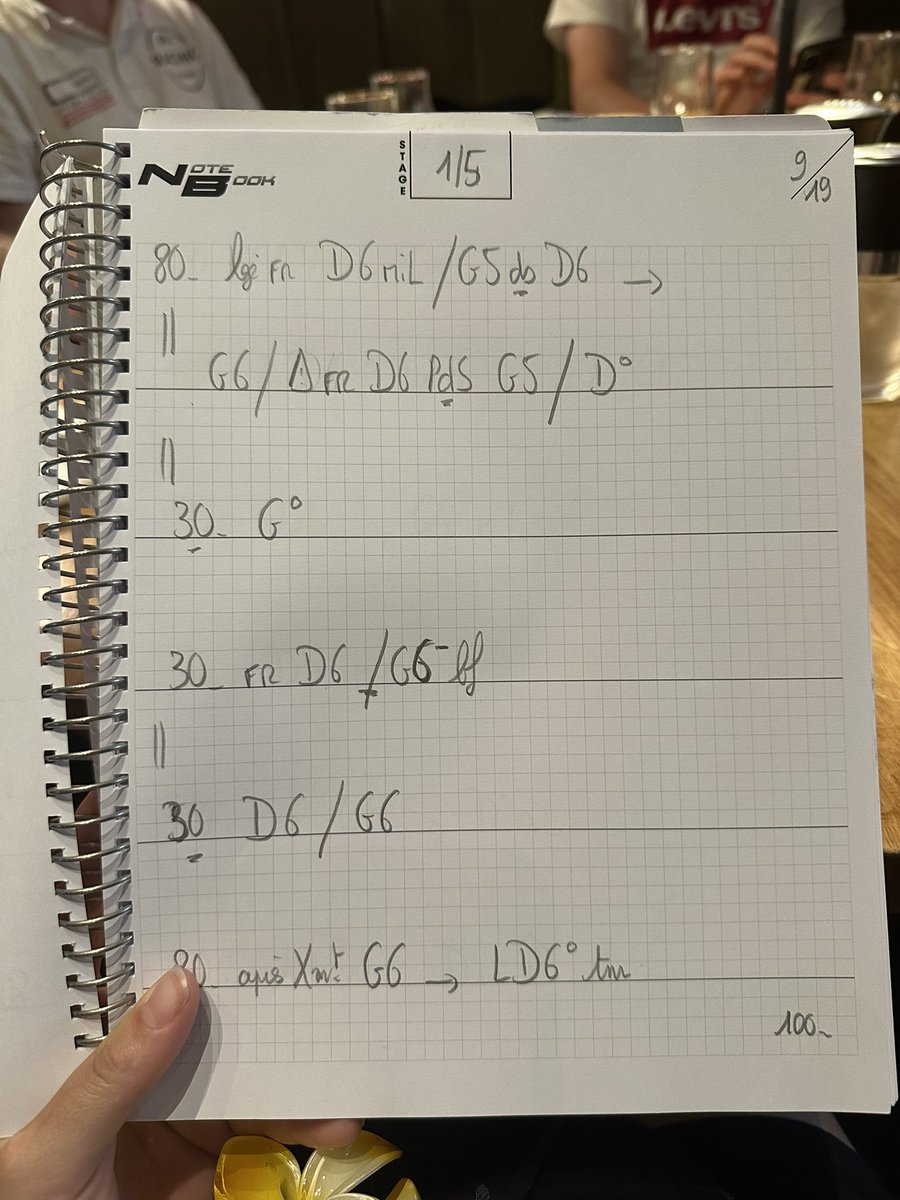 LEVI'S
NOTE BOOK STAGE 1/5 9/19
80_ lgé FR D6 MIL / G5 ds D6 →
||
G6 / Δ FR D6 PdS G5 / D°
||
30_ G°
30_ FR D6 / G6⁻
||
30 D6 / G6
80_ après Xmt G6 → LD6° tm
100_